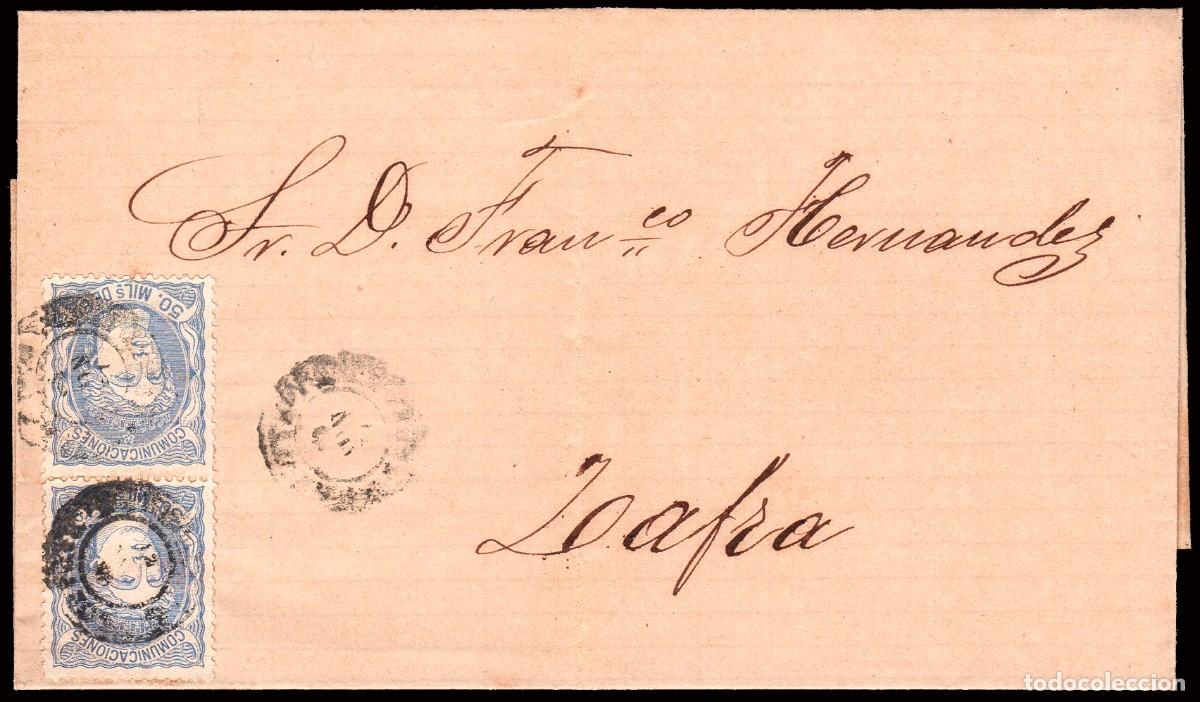 Sr. D. Fran.co Hernandez
Zafra
50. MILS DE
COMUNICACIONES.
COMUNICACIONES.
todocoleccion